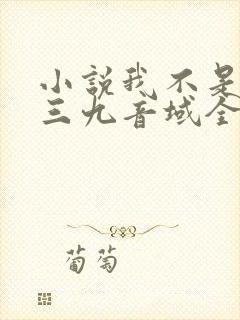 小説我不是
三九音域全
葡萄